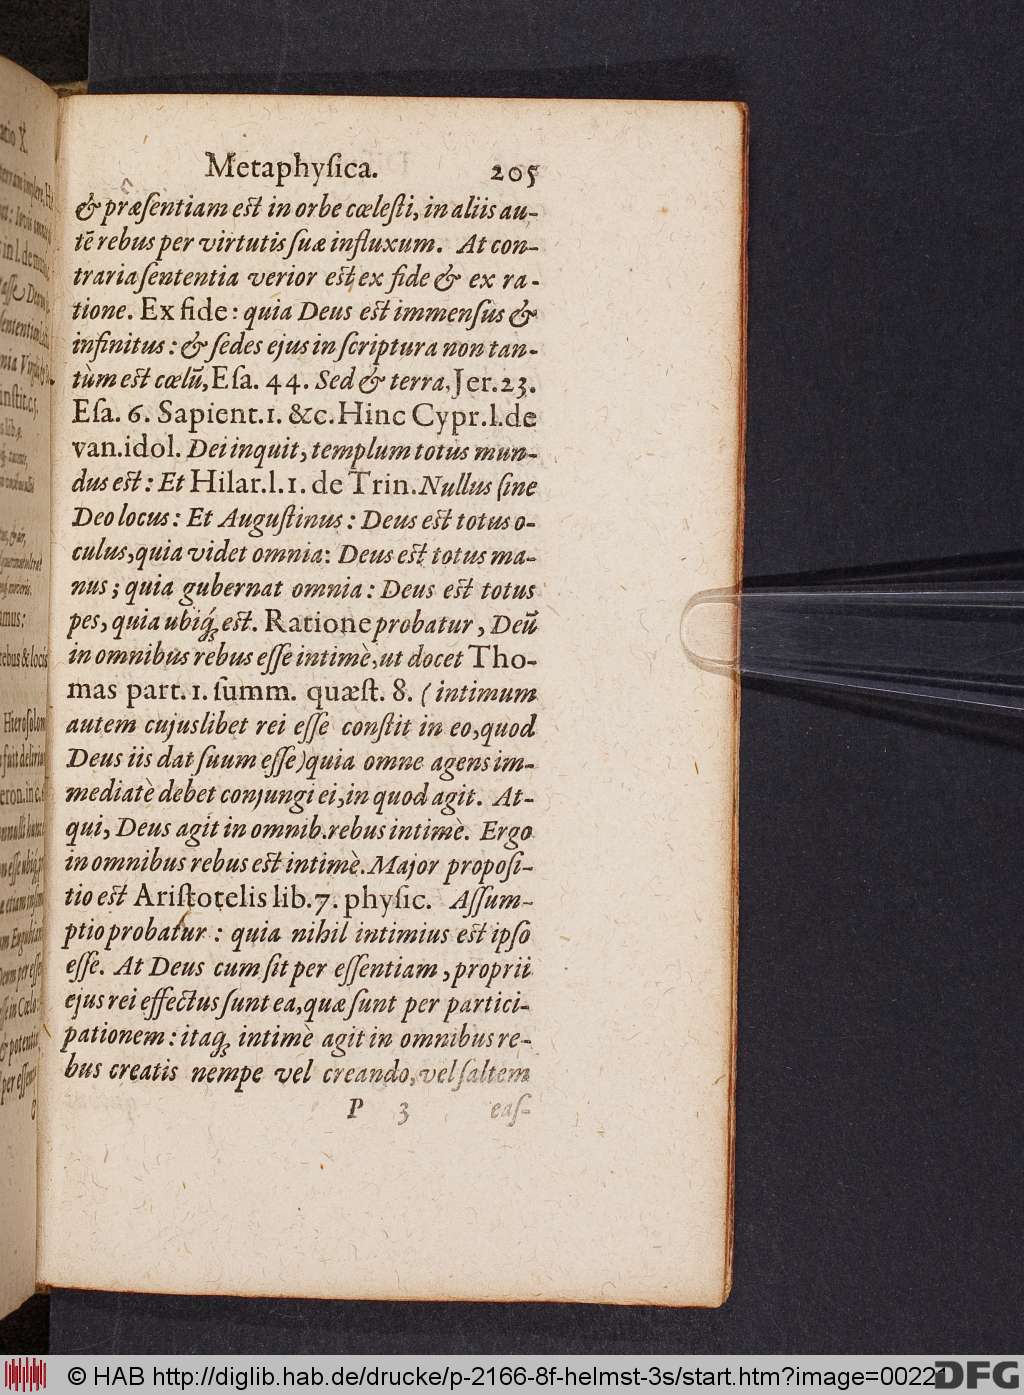 Metaphyſica. 205
& præſentiam eſt in orbe cœleſti, in aliis au-
tē rebus per virtutis ſuæ influxum. At con-
traria ſententia verior eſt ex fide & ex ra-
tione. Ex fide: quia Deus eſt immenſus &
infinitus: & ſedes ejus in ſcriptura non tan-
tùm eſt cœlū, Eſa. 44. Sed & terra, Jer. 23.
Eſa. 6. Sapient. 1. &c. Hinc Cypr. l. de
van. idol. Dei inquit, templum totus mun-
dus eſt: Et Hilar. l. 1. de Trin. Nullus ſine
Deo locus: Et Auguſtinus: Deus eſt totus o-
culus, quia videt omnia: Deus eſt totus ma-
nus; quia gubernat omnia: Deus eſt totus
pes, quia ubiq́; eſt. Ratione probatur, Deū
in omnibus rebus eſſe intimè, ut docet Tho-
mas part. 1. ſumm. quæſt. 8. (intimum
autem cujuslibet rei eſſe conſtit in eo, quod
Deus iis dat ſuum eſſe) quia omne agens im-
mediatè debet conjungi ei, in quod agit. At-
qui, Deus agit in omnib. rebus intimè. Ergo
in omnibus rebus eſt intimè. Major propoſi-
tio eſt Ariſtotelis lib. 7. phyſic. Aſſum-
ptio probatur: quia nihil intimius eſt ipſo
eſſe. At Deus cum ſit per eſſentiam, proprii
ejus rei effectus ſunt ea, quæ ſunt per partici-
pationem: itaq; intimè agit in omnibus re-
bus creatis nempe vel creando, vel ſaltem
P 3 eaſ-
© HAB http://diglib.hab.de/drucke/p-2166-8f-helmst-3s/start.htm?image=00221
DFG